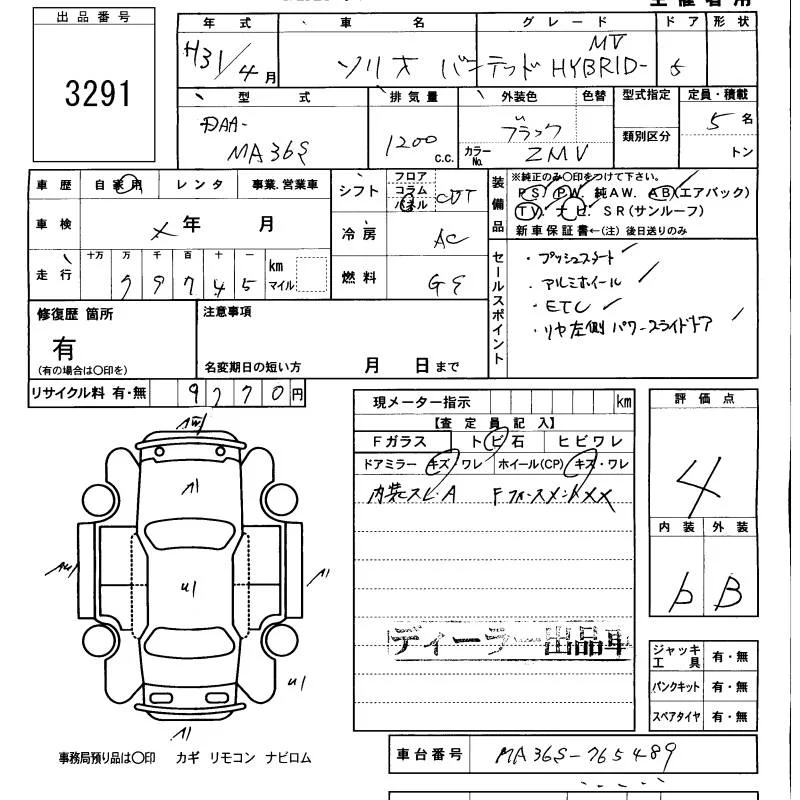 主催者用
出品番号
3291
年式 車名 グレード ドア 形状
H31/4月 ソリオ バンデッド HYBRID-MV 5
型式 排気量 外装色 色替 型式指定 定員・積載
DAA-
MA36S 1200 c.c. ブラック 5名
カラーNo. ZMV 類別区分 トン
車歴 自家用 レンタ 事業.営業車
車検 年 月
走行 十万 万 千 百 十 一 km マイル
99745
シフト フロア コラム パネル CVT
冷房 AC
燃料
装備品
※純正のみ〇印をつけて下さい。
PS. PW. 純AW. AB(エアバック)
TV. ナビ. SR(サンルーフ)
新車保証書←(注) 後日送りのみ
セールスポイント
・プッシュスタート
・アルミホイール
・ETC
・リヤ左側 パワースライドドア
修復歴 箇所
有
(有の場合は〇印を)
注意事項
名変期日の短い方 月 日まで
リサイクル料 有・無 9770円
現メーター指示 km
【査定員記入】
Fガラス トビ石 ヒビワレ
ドアミラー キズ・ワレ ホイール(CP) キズ・ワレ
内装スレ・A
ディーラー出品車
評価点
4
内装 外装
b B
ジャッキ工具 有・無
パンクキット 有・無
スペアタイヤ 有・無
事務局預り品は〇印 カギ リモコン ナビロム
車台番号 MA36S-765489